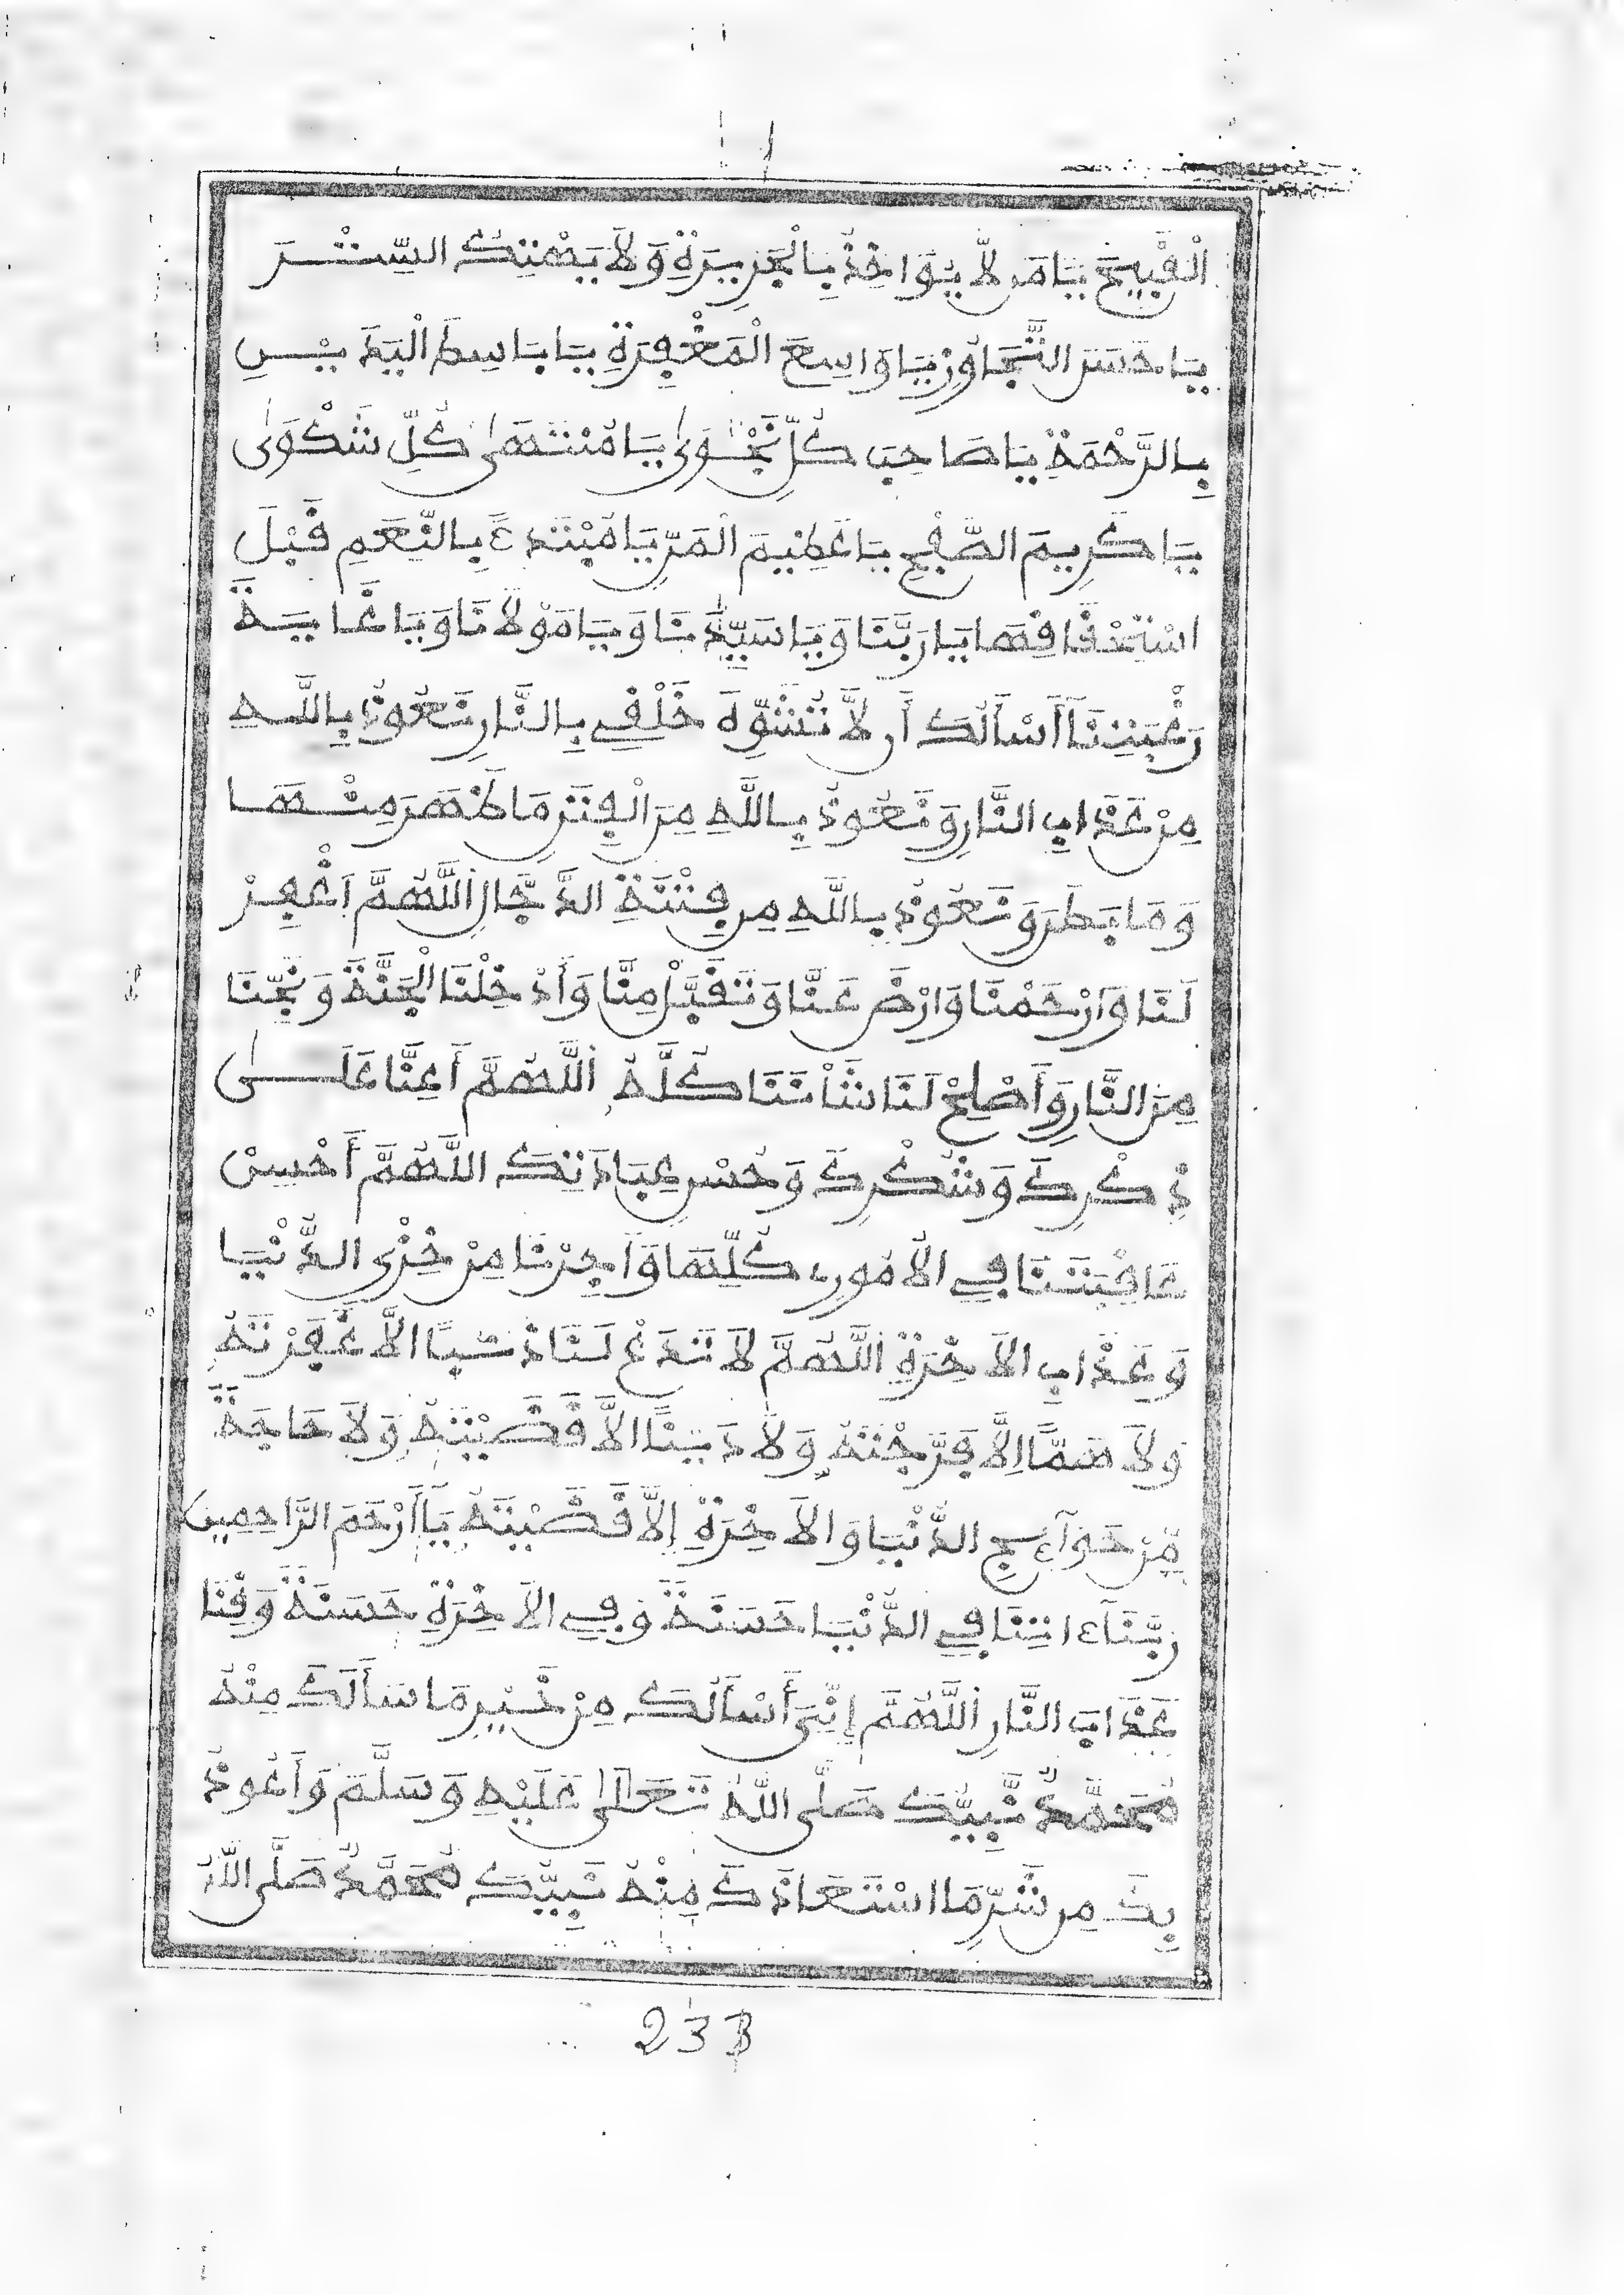 الْقَبِيحَ يَا مَن لَّا يُوَاخِذُ بِالْجَرِيرَةِ وَلَا يَهْتِكُ السِّتْرَ
يَا حَسَنَ التَّجَاوُزِ يَا وَاسِعَ الْمَغْفِرَةِ يَا بَاسِطَ الْيَدَيْنِ
بِالرَّحْمَةِ يَا صَاحِبَ كُلِّ نَجْوَىٰ يَا مُنْتَهَىٰ كُلِّ شَكْوَىٰ
يَا كَرِيمَ الصَّفْحِ يَا عَظِيمَ الْمَنِّ يَا مُبْتَدِئَ بِالنِّعَمِ قَبْلَ
اسْتِحْقَاقِهَا يَا رَبَّنَا وَيَا سَيِّدَنَا وَيَا مَوْلَانَا وَيَا غَايَةَ
رَغْبَتِنَا أَسْأَلُكَ أَن لَّا تُشَوِّهَ خَلْقِي بِالنَّارِ نَعُوذُ بِاللَّهِ
مِنْ عَذَابِ النَّارِ وَنَعُوذُ بِاللَّهِ مِنَ الْفِتَنِ مَا ظَهَرَ مِنْهَا
وَمَا بَطَنَ وَنَعُوذُ بِاللَّهِ مِن فِتْنَةِ الدَّجَّالِ اللَّهُمَّ اغْفِرْ
لَنَا وَارْحَمْنَا وَارْضَ عَنَّا وَتَقَبَّلْ مِنَّا وَأَدْخِلْنَا الْجَنَّةَ وَنَجِّنَا
مِنَ النَّارِ وَأَصْلِحْ لَنَا شَأْنَنَا كُلَّهُ اللَّهُمَّ أَعِنَّا عَلَىٰ
ذِكْرِكَ وَشُكْرِكَ وَحُسْنِ عِبَادَتِكَ اللَّهُمَّ أَحْسِنْ
عَاقِبَتَنَا فِي الْأُمُورِ كُلِّهَا وَأَجِرْنَا مِنْ خِزْيِ الدُّنْيَا
وَعَذَابِ الْآخِرَةِ اللَّهُمَّ لَا تَدَعْ لَنَا ذَنْبًا إِلَّا غَفَرْتَهُ
وَلَا هَمًّا إِلَّا فَرَّجْتَهُ وَلَا دَيْنًا إِلَّا قَضَيْتَهُ وَلَا حَاجَةً
مِّنْ حَوَآئِجِ الدُّنْيَا وَالْآخِرَةِ إِلَّا قَضَيْتَهُ يَا أَرْحَمَ الرَّاحِمِينَ
رَبَّنَآ ءَاتِنَا فِي الدُّنْيَا حَسَنَةً وَفِي الْآخِرَةِ حَسَنَةً وَقِنَا
عَذَابَ النَّارِ اللَّهُمَّ إِنِّي أَسْأَلُكَ مِنْ خَيْرِ مَا سَأَلَكَ مِنْهُ
مُحَمَّدٌ نَّبِيُّكَ صَلَّى اللَّهُ تَعَالَىٰ عَلَيْهِ وَسَلَّمَ وَأَعُوذُ
بِكَ مِن شَرِّ مَا اسْتَعَاذَكَ مِنْهُ نَبِيُّكَ مُحَمَّدٌ صَلَّى اللَّهُ
233